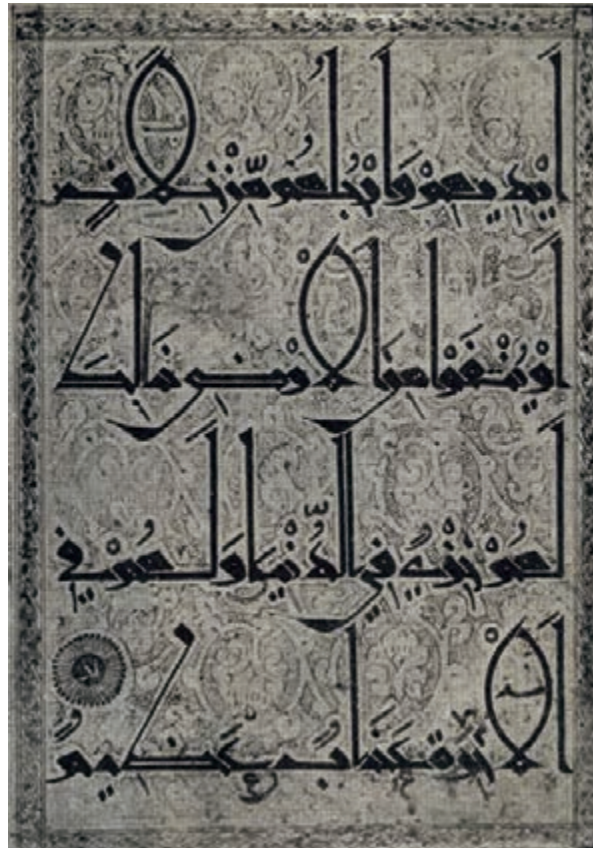 اَيْدِيهِمْ وَاَرْجُلُهُمْ مِّنْ خِلَافٍ
اَوْ يُنْفَوْا مِنَ الْاَرْضِ ذَلِكَ
لَهُمْ خِزْيٌ فِي الدُّنْيَا وَلَهُمْ فِي
الْاٰخِرَةِ عَذَابٌ عَظِيمٌ